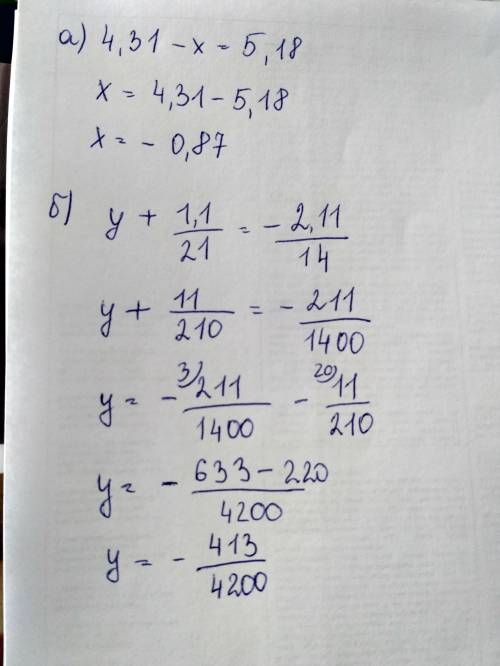 а) 4,31 - x = 5,18
x = 4,31 - 5,18
x = - 0,87
б) y + 1,1/21 = - 2,11/14
y + 11/210 = - 211/1400
y = - 3) 211/1400 - 20) 11/210
y = - 633 - 220/4200
y = - 413/4200